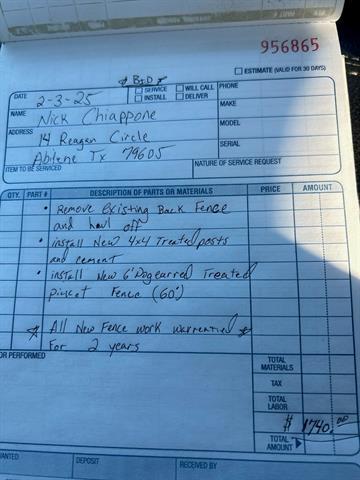 956865
ESTIMATE (VALID FOR 30 DAYS)
* BID *
DATE 2-3-25
SERVICE
WILL CALL
INSTALL
DELIVER
PHONE
NAME Nick Chiappone
MAKE
ADDRESS 14 Reagan Circle
MODEL
Abilene Tx 79605
SERIAL
ITEM TO BE SERVICED
NATURE OF SERVICE REQUEST
QTY. PART # DESCRIPTION OF PARTS OR MATERIALS PRICE AMOUNT
• Remove Existing Back Fence
and haul off
• install New 4x4 Treated posts
and cement
• install New 6' Dogearred Treated
picket Fence (60')
* All New Fence work warrentied *
For 2 years
OR PERFORMED
TOTAL MATERIALS
TAX
TOTAL LABOR
TOTAL AMOUNT $ 1740.00
WANTED
DEPOSIT
RECEIVED BY